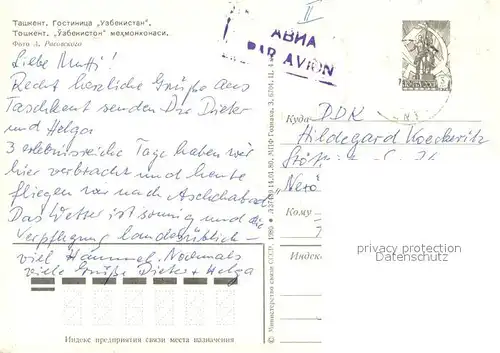 Ташкент. Гостиница „Узбекистан".
Тошкент. „Ўзбекистон" меҳмонхонаси.
Фото Л. Раговского
Liebe Mutti!
Recht herzliche Grüße aus
Taschkent senden Dir Dieter
und Helga
3 erlebnisreiche Tage haben wir
hier verbracht und heute
fliegen wir nach Aschchabad.
Das Wetter ist sonnig und die
Verpflegung landesüblich –
viel Hammel. Nochmals
viele Grüße Dieter + Helga
Индекс предприятия связи места назначения
© Министерство связи СССР. 1980 14.01.80. МПФ Гознака. З.
II
АВИА
PAR AVION
Куда DDR
Hildegard
Кому
Индекс
privacy protection
Datenschutz